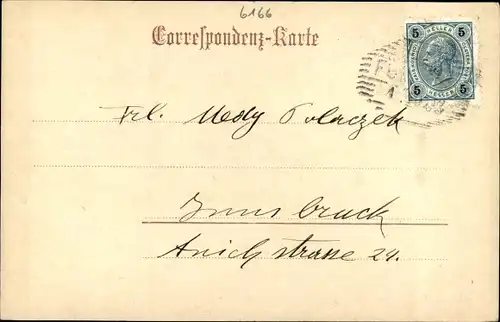 6166
Correspondenz-Karte
5 HELLER 5
5 HELLER 5
Frl. Medy Polaczek
Innsbruck
Anichstrasse 24.